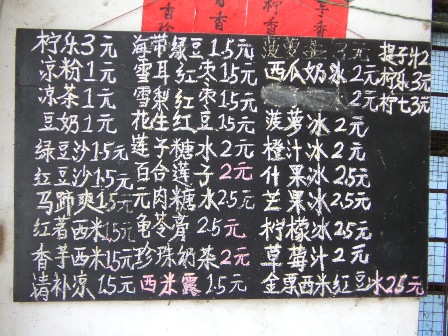 柠乐3元
凉粉1元
凉茶1元
豆奶1元
绿豆沙1.5元
红豆沙1.5元
马蹄爽1.5元
红薯西米1.5元
香芋西米1.5元
清补凉1.5元
海带绿豆1.5元
雪耳红枣1.5元
雪梨红枣1.5元
花生红豆1.5元
莲子糖水2元
百合莲子2元
元肉糖水2.5元
龟苓膏2.5元
珍珠奶茶2元
西米露1.5元
2元
西瓜奶冰2元
2元
菠萝冰2元
橙汁冰2元
什果冰2.5元
芒果冰2.5元
柠檬冰2.5元
草莓汁2元
金粟西米红豆冰2.5元
提子汁2
柠乐3元
柠七3元